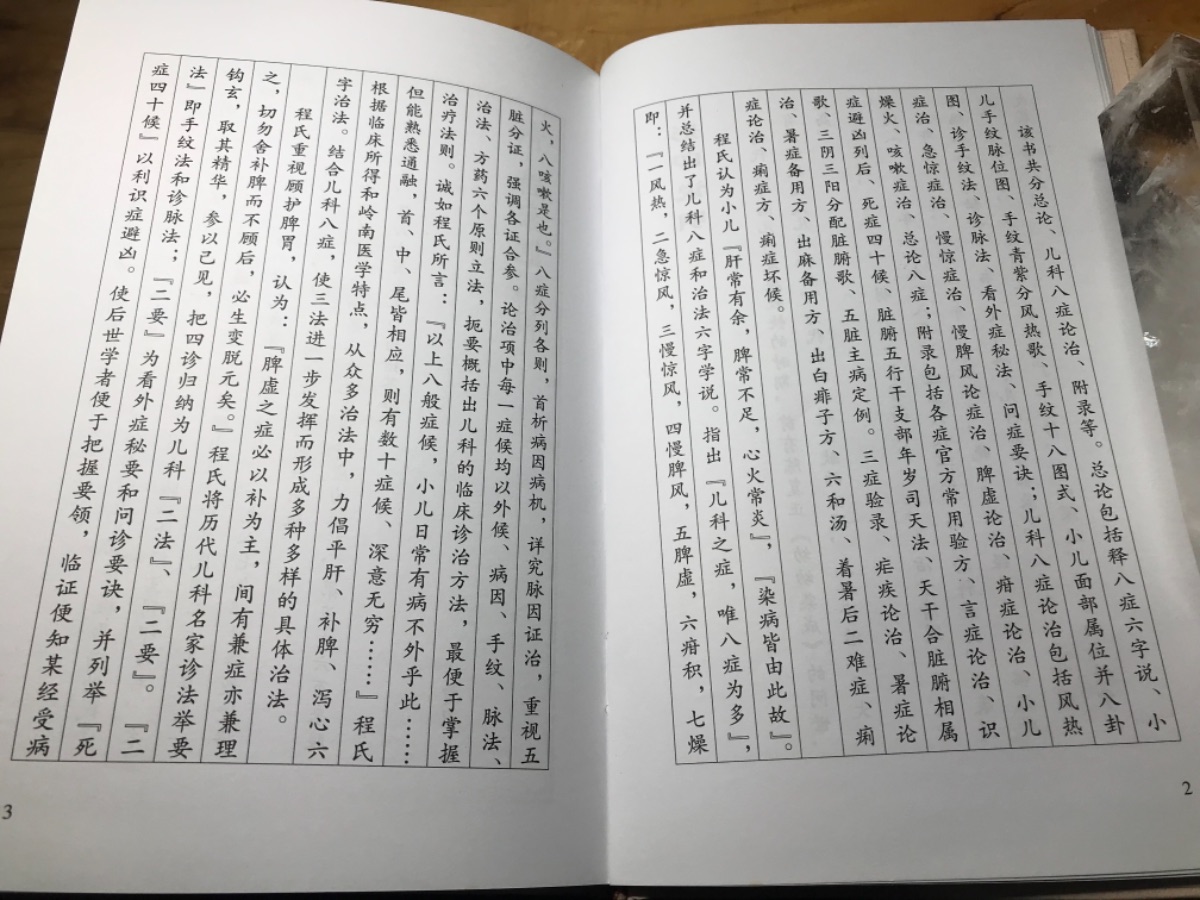 该书共分总论、儿科八症论治、附录等。总论包括释八症六字说、小
儿手纹脉位图、手纹青紫分风热歌、手纹十八图式、小儿面部属位并八卦
图、诊手纹法、诊脉法、看外症秘法、问症要诀；儿科八症论治包括风热
症治、急惊症治、慢惊症治、慢脾风论症治、脾虚论治、疳症论治、小儿
燥火、咳嗽症治、总论八症；附录包括各症官方常用验方、言症论治、识
症避凶列后、死症四十候、脏腑五行干支部年岁司天法、天干合脏腑相属
歌、三阴三阳分配脏腑歌、五脏主病定例。三症验录、疟疾论治、暑症论
治、暑症备用方、出麻备用方、出白痱子方、六和汤、着暑后二难症、痢
症论治、痢症方、痢症坏候。
程氏认为小儿『肝常有余，脾常不足，心火常炎』，『染病皆由此故』。
并总结出了儿科八症和治法六字学说。指出『儿科之症，唯八症为多』，
即：『一风热，二急惊风，三慢惊风，四慢脾风，五脾虚，六疳积，七燥
火，八咳嗽是也。』八症分列各则，首析病因病机，详究脉因证治，重视五
脏分证，强调各证合参。论治项中每一症候均以外候、病因、手纹、脉法、
治法、方药六个原则立法，扼要概括出儿科的临床诊治方法，最便于掌握
治疗法则。诚如程氏所言：『以上八般症候，小儿日常有病不外乎此……
但能熟悉通融，首、中、尾皆相应，则有数十症候、深意无穷……』程氏
根据临床所得和岭南医学特点，从众多治法中，力倡平肝、补脾、泻心六
字治法。结合儿科八症，使三法进一步发挥而形成多种多样的具体治法。
程氏重视顾护脾胃，认为：『脾虚之症必以补为主，间有兼症亦兼理
之，切勿舍补脾而不顾后，必生变脱元矣。』程氏将历代儿科名家诊法举要
钩玄，取其精华，参以己见，把四诊归纳为儿科『二法』、『二要』。『二
法』即手纹法和诊脉法；『二要』为看外症秘要和问诊要诀，并列举『死
症四十候』以利识症避凶。使后世学者便于把握要领，临证便知某经受病
2
3